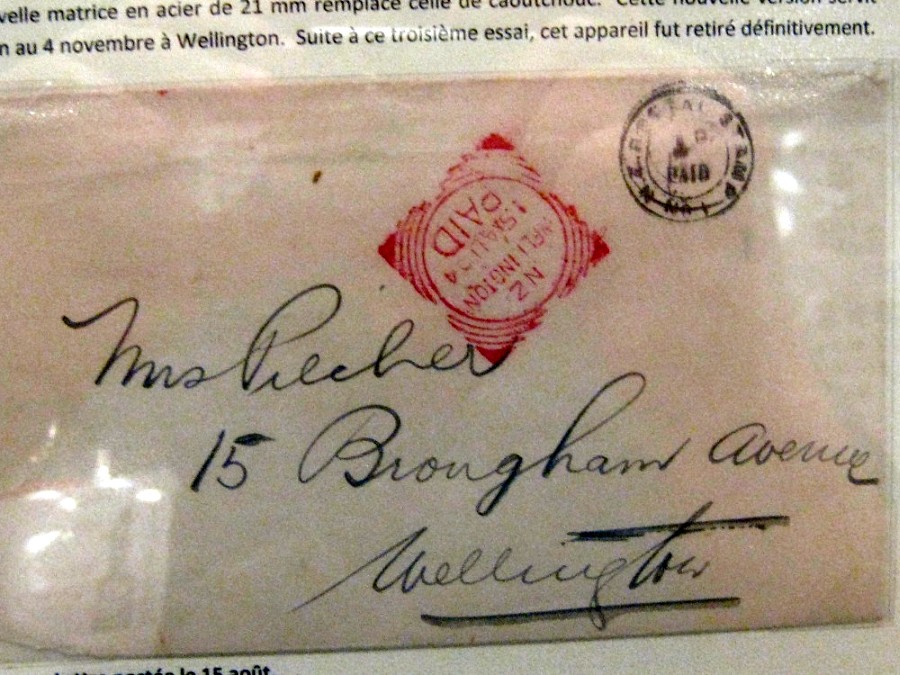 velle matrice en acier de 21 mm remplace celle de caoutchouc. Cette nouvelle version servit
n au 4 novembre à Wellington. Suite à ce troisième essai, cet appareil fut retiré définitivement.
N.Z. POSTAL STAMP
PAID
No 1
WELLINGTON
N.Z.
15
PAID
Mrs Pilcher
15 Brougham Avenue
Wellington
postée le 15 août